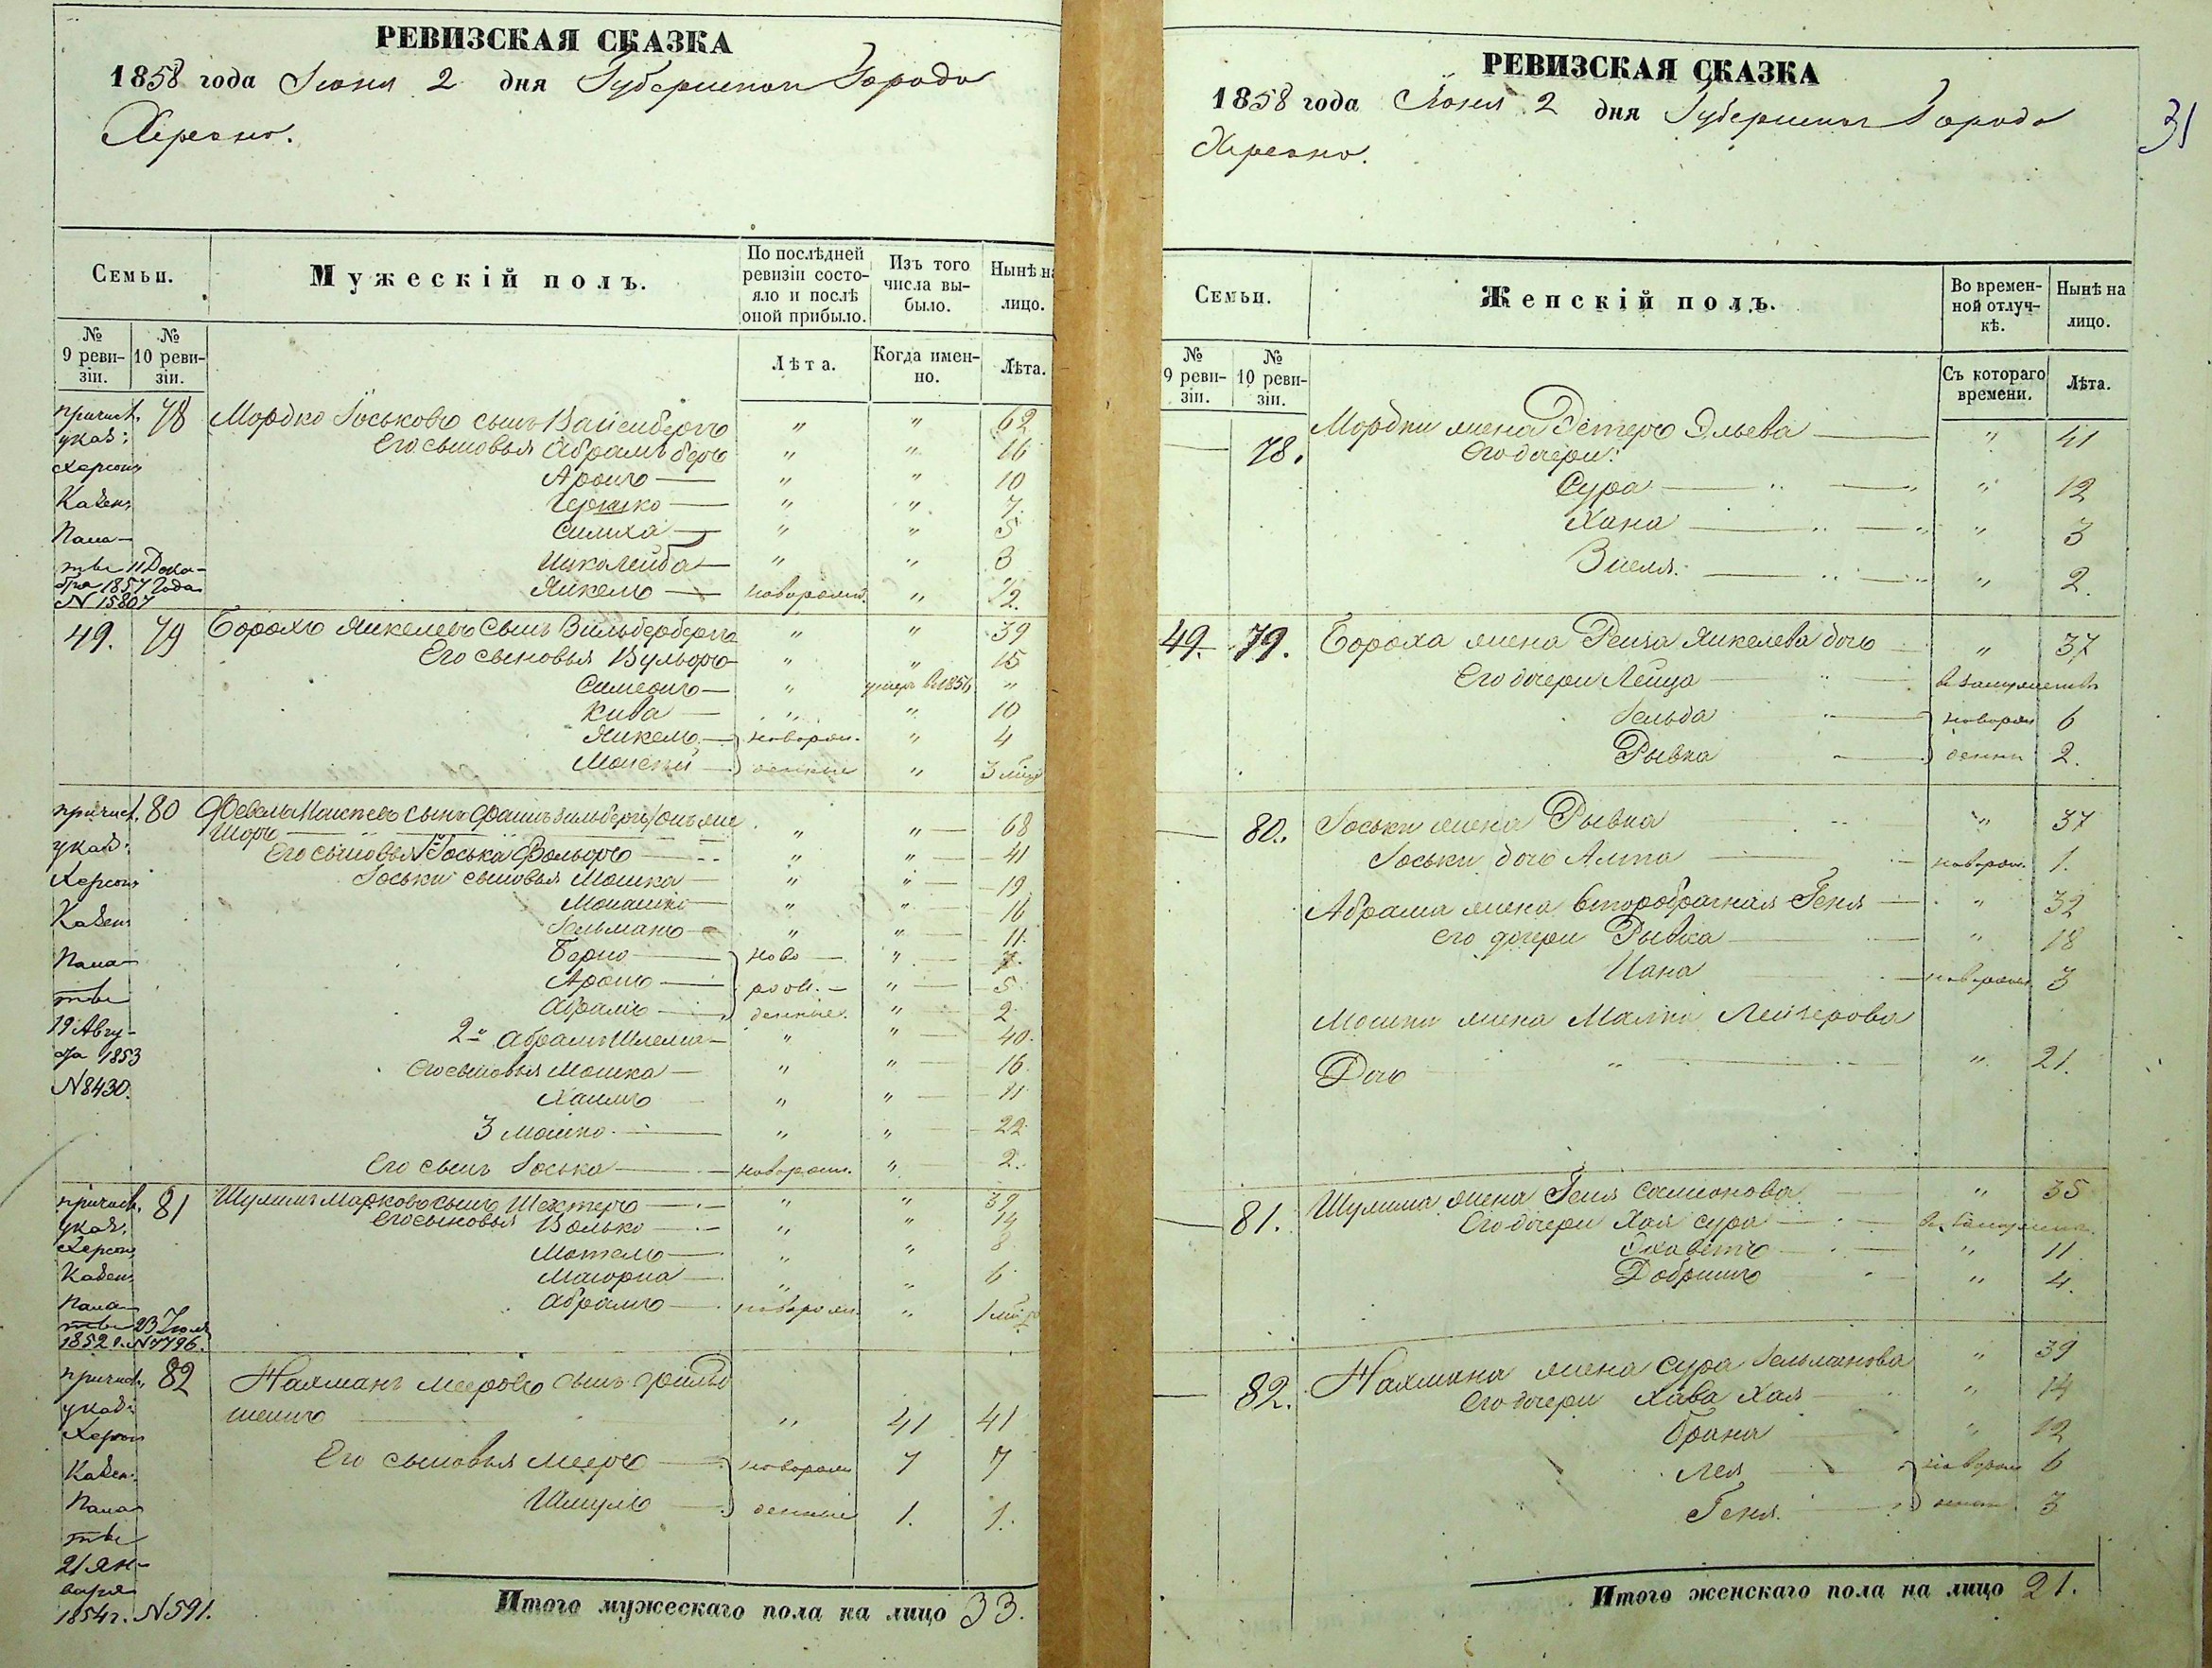 РЕВИЗСКАЯ СКАЗКА
1858 года Іюня 2 дня Губернскаго Города
Херсона.
Семьи.
Мужескій полъ.
По послѣдней ревизіи состояло и послѣ оной прибыло.
Изъ того числа выбыло.
Нынѣ на лицо.
№ 9 ревизіи.
№ 10 ревизіи.
Лѣта.
Когда именно.
Лѣта.
причис. указ: Херсон. Казен. Пала- 11 Дека- бря 1857 года N 15807
78 Мордко Іоськовъ сынъ " " 62
Его сыновья Абрамъ Беръ " " 16
Аронъ " " 10
Гершко " " 7.
Симха " " 5
" " 3
Янкель новорожд. " 1/2.
49. 79 Борохъ Янкелевъ сынъ " " 39
Его сыновья Вульфъ " " 15
Симеонъ " умеръ въ 1856 "
Кива " " 10
Янкель новорож- " 4
Моисей денные " 3
причис. указ: Херсон. Казен. Пала- 19 Авгу- ста 1853 N 8430.
80 сынъ
Шоръ " " 68
Его сыновья 1 Іоська Вольфъ " " 41
Іоськи сыновья Мошка " " 19
" " 16
Гельманъ " " 11.
Берко ново " 7.
Аронъ рож- " 5
Абрамъ денные. " 2
2й Абрамъ Шлема " " 40.
Его сыновья Мошка " " 16
Хаимъ " " 11
3 Мошко " " 22
Его сынъ Іоська новорож. " 2.
причис. указ. Херсон. Казен. Пала- 23 Іюля 1852 г. N 7796.
81 Шулимъ Марковъ сынъ Шехтеръ " " 39
Его сыновья Волько " " 14
Мотель " " 8
" " 6
Абрамъ новорож. " 1
причис. указ: Херсон Казен. Пала- 21 Ян- варя 1854 г. N 591.
82 Нахманъ Мееровъ сынъ Фильд
штейнъ " 41 41
Его сыновья Мееръ новорож 7 7
Шмуль денные 1. 1.
Итого мужескаго пола на лицо 33.
РЕВИЗСКАЯ СКАЗКА
1858 года Іюня 2 дня Губернскаго Города
Херсона.
31
Семьи.
Женскій полъ.
Во временной отлучкѣ.
Нынѣ на лицо.
№ 9 ревизіи.
№ 10 ревизіи.
Съ котораго времени.
Лѣта.
78. Мордки жена Эстеръ Эльева " 41
Его дочери:
Сура " 12
Хана " 3
" 2.
49. 79. Бороха жена Рейза Янкелева дочь " 37
Его дочери Лейца въ замужествѣ
Гельда новорож 6
Рывка денны 2.
80. Іоськи жена Рывка " 37
Іоськи дочь Алта новорож. 1.
Абрама жена второбрачная Геня " 32
его дочери Рывка " 18
Хана новорож 3
Мошки жена Малка Лейзерова
Дочь " 21.
81. Шулима жена Геня " 35
Его дочери Хая Сура въ замуже
" 11
Добришъ " 4.
82. Нахмана жена Сура Гельманова " 39
Его дочери Хава Хая " 14
Брана " 12
Лея новорож 6
Геня. 3
Итого женскаго пола на лицо 21.